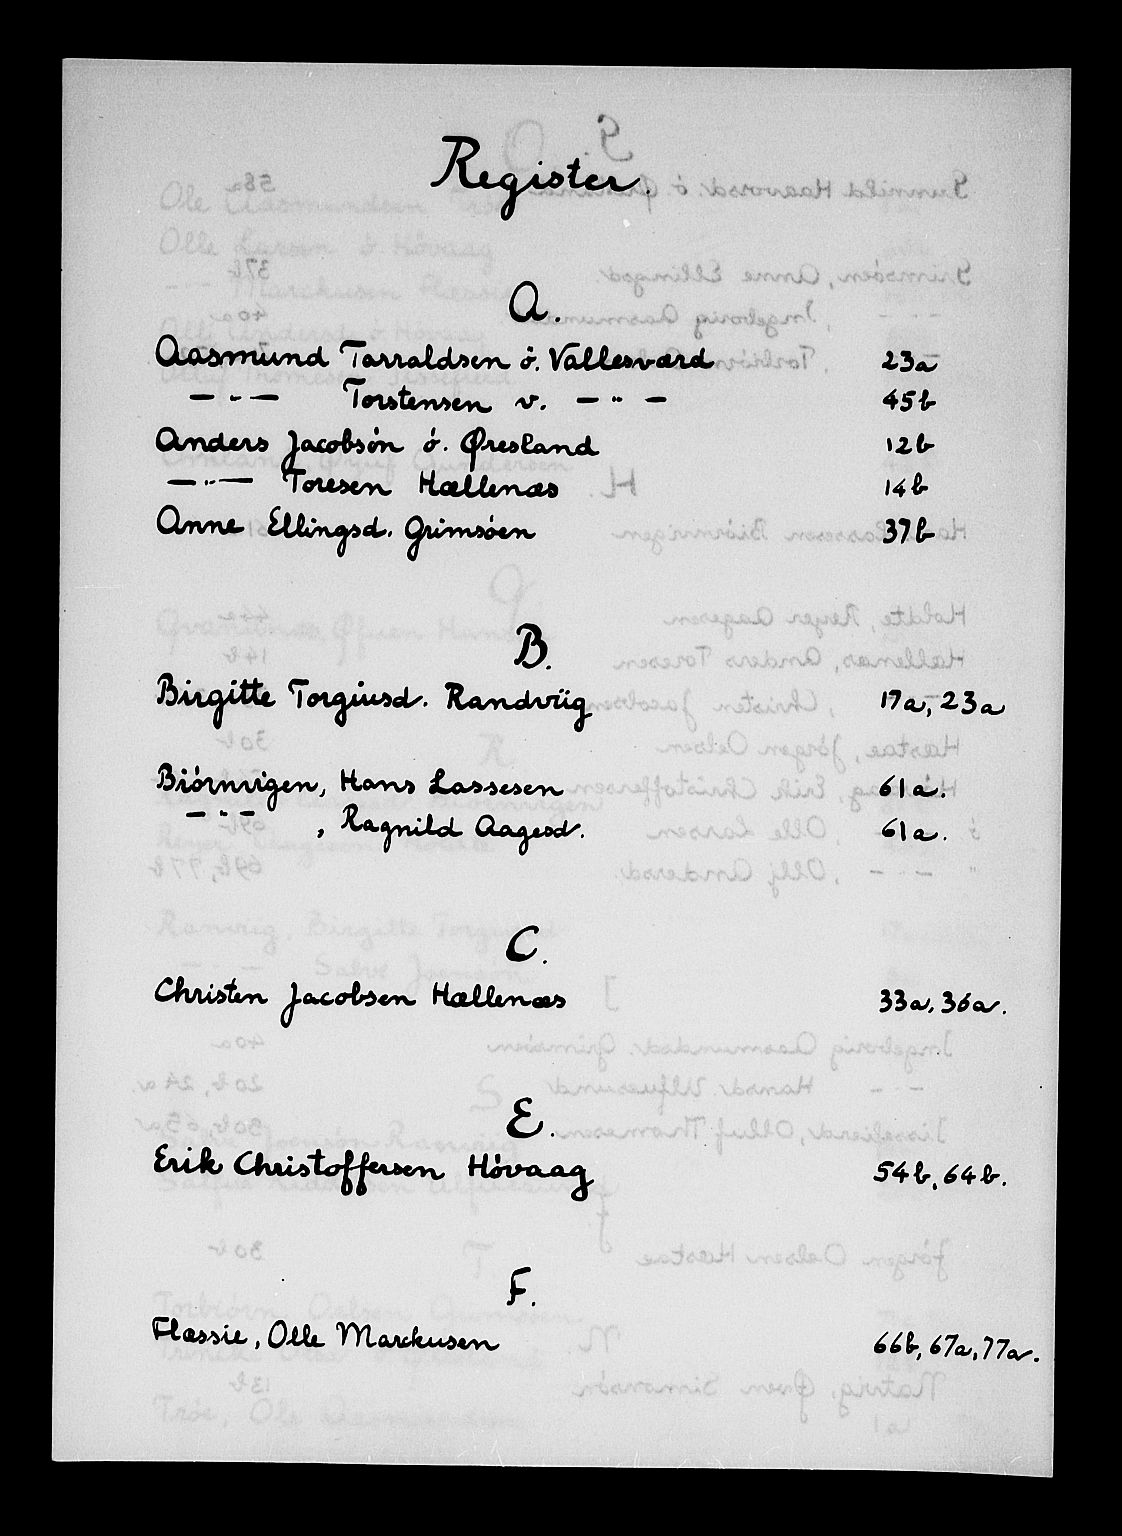 Register.
A.
Aasmund Tarraldsen ó. Vallesværd 23a
— " — Torstensen v. — " — 45b
Anders Jacobsón ó. Øresland 12b
— " — Toresen Hællenæs 14b
Anne Ellingsd. Grimsóen 37b
B.
Birgitte Torgiusd. Randviig 17a, 23a
Biórnvigen, Hans Lassesen 61a.
— " — , Ragnild Aagesd. 61a.
C.
Christen Jacobsen Hællenæs 33a, 36a.
E.
Erik Christoffersen Hóvaag 54b, 64b.
F.
Flæssie, Olle Marckusen 66b, 67a, 77a.